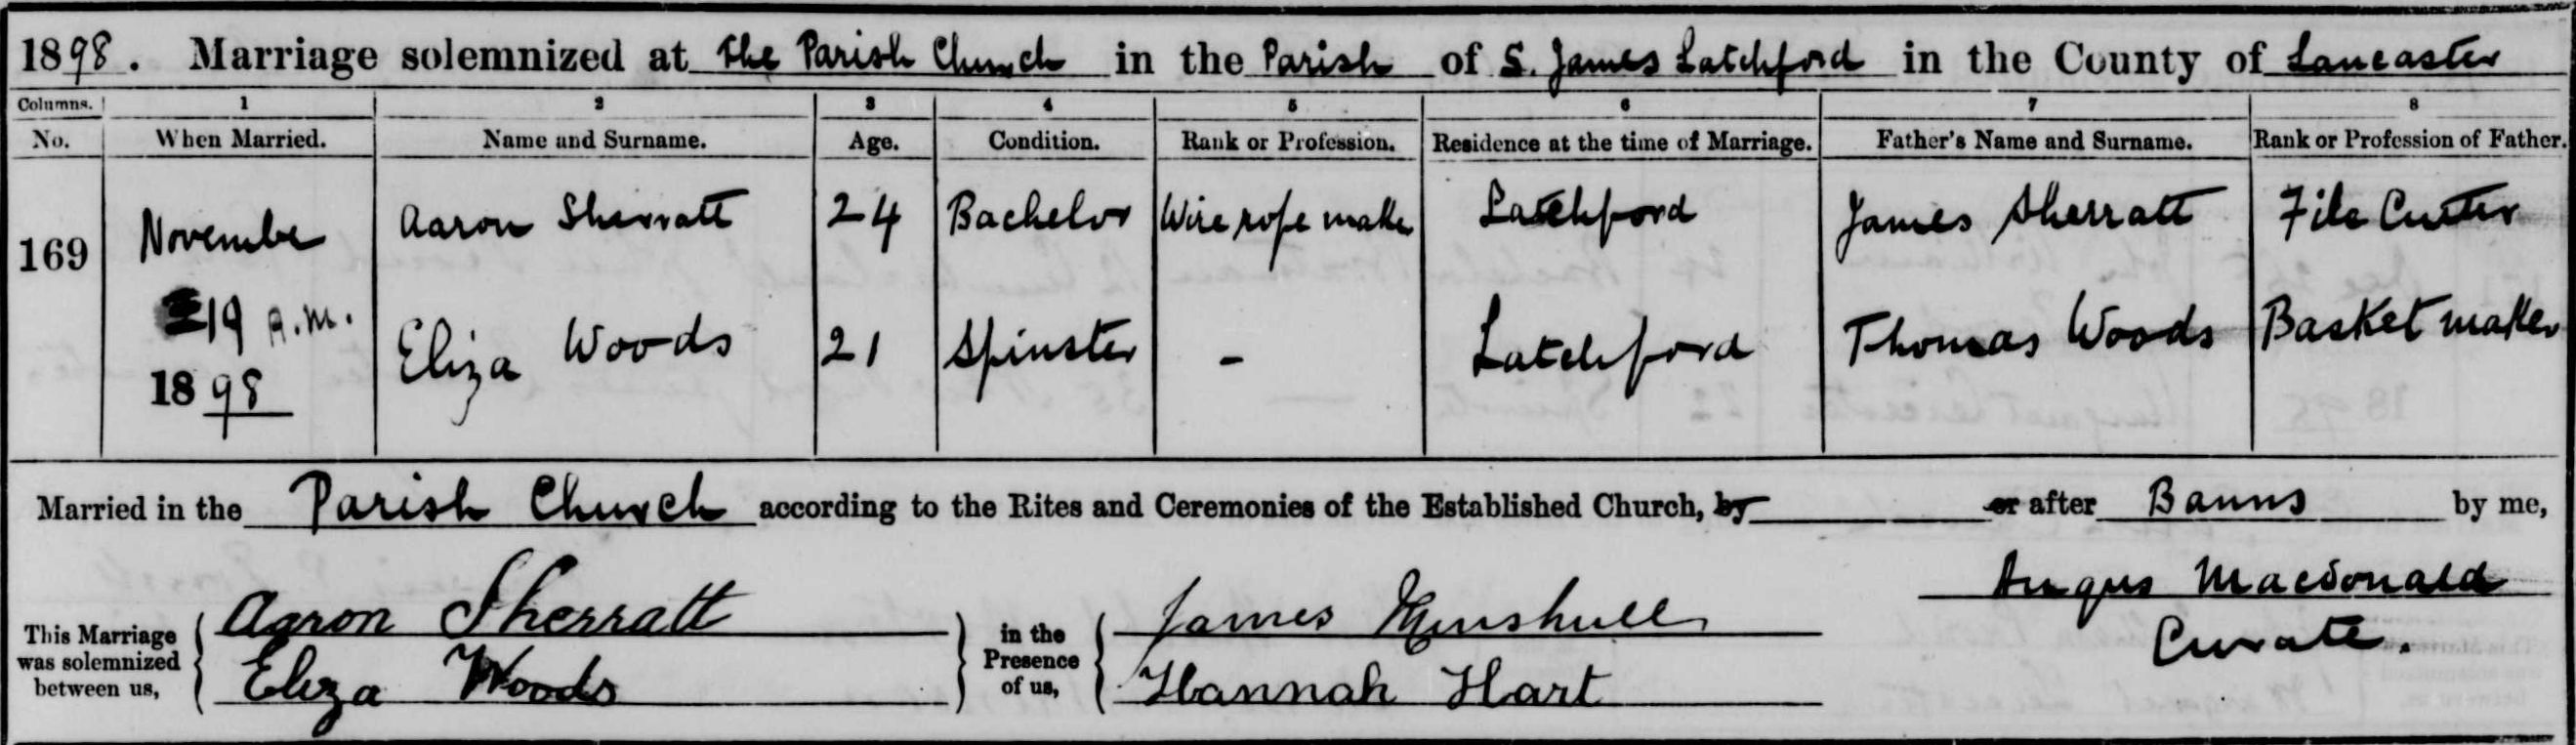 1898. Marriage solemnized at the Parish Church in the Parish of S. James Latchford in the County of Lancaster
Columns. 1 2 3 4 5 6 7 8
No. When Married. Name and Surname. Age. Condition. Rank or Profession. Residence at the time of Marriage. Father's Name and Surname. Rank or Profession of Father.
169 November Aaron Sherratt 24 Bachelor Wire rope maker Latchford James Sherratt File Cutter
19 A.M. Eliza Woods 21 Spinster - Latchford Thomas Woods Basket maker
1898
Married in the Parish Church according to the Rites and Ceremonies of the Established Church, by or after Banns by me,
Aaron Sherratt James Minshull Angus Macdonald
This Marriage was solemnized between us, in the Presence of us, Curate.
Eliza Woods Hannah Hart